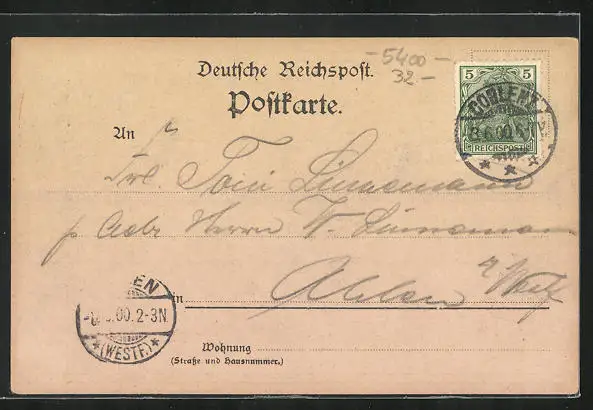 -5400-
32-
Deutsche Reichspost.
Postkarte.
5 5
REICHSPOST
COBLENZ
An
Frl. Toni Linnemann
p Adr Herrn W. Linnemann
Ahlen
i/ Westf
in
2-3N.
(WESTF.)
Wohnung
(Straße und Hausnummer.)